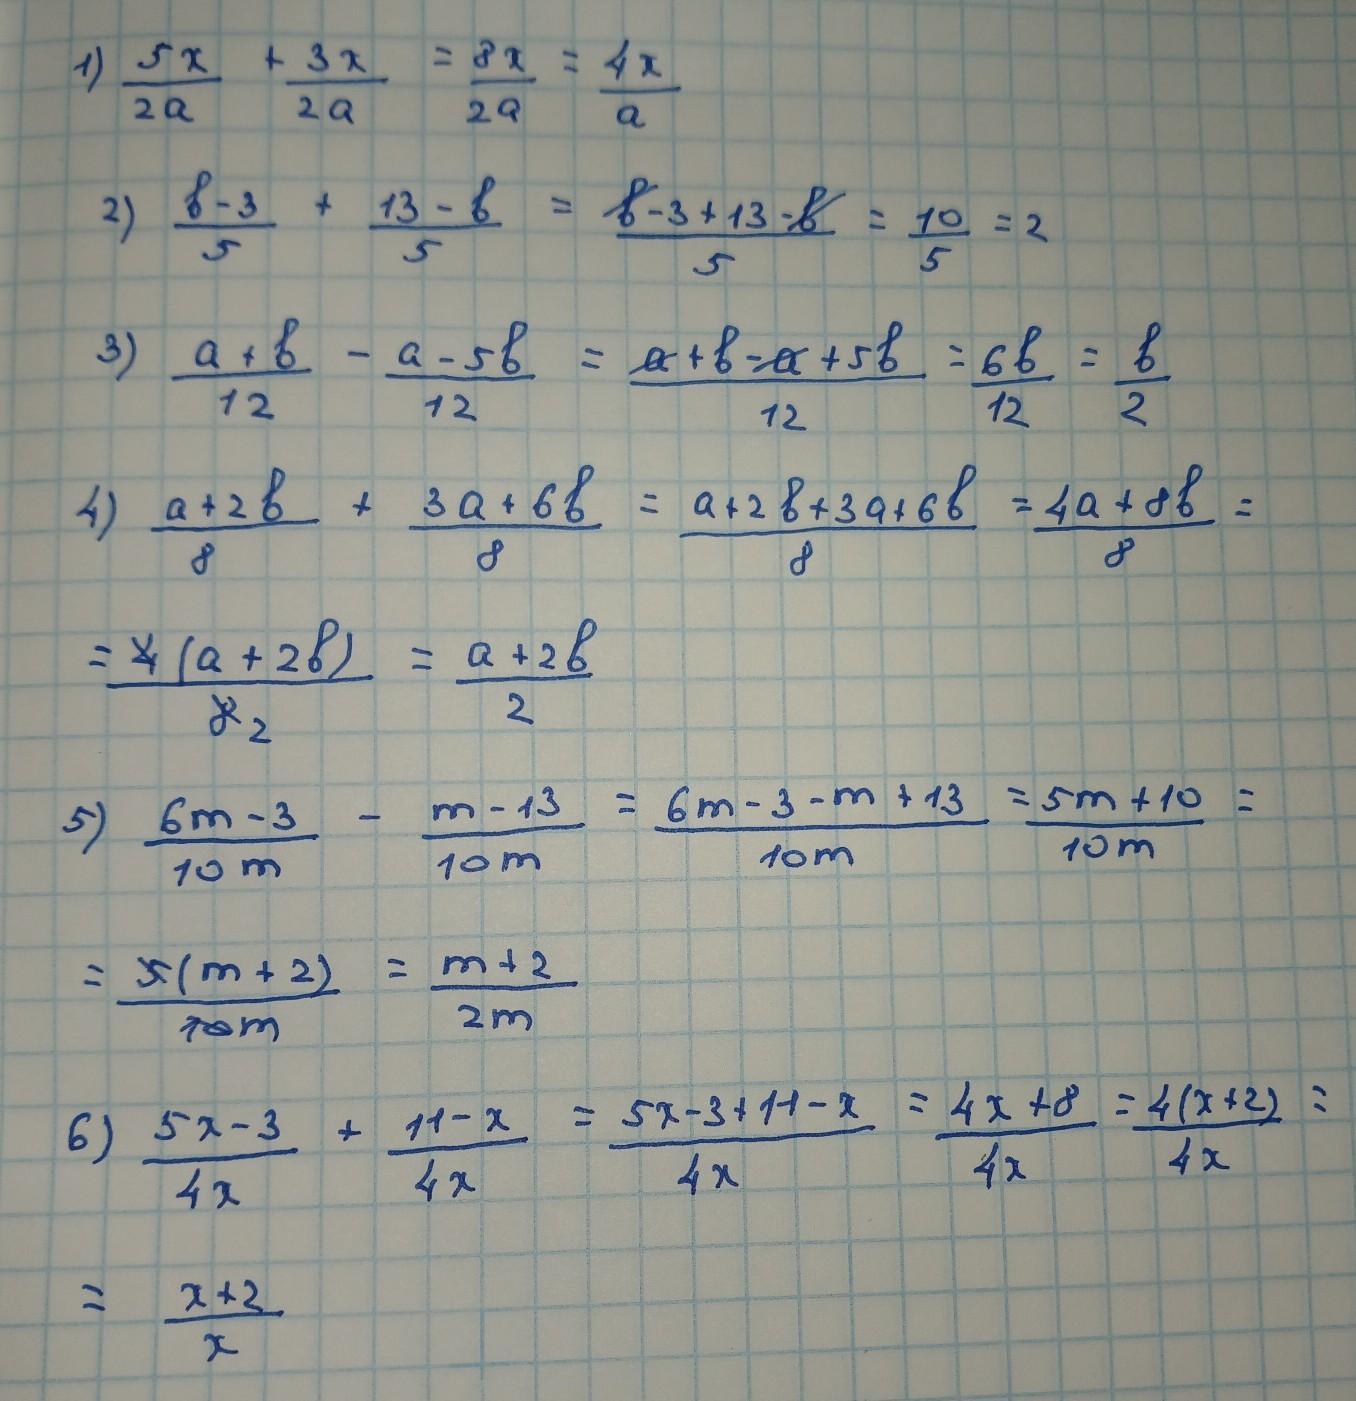 1) 5x/2a + 3x/2a = 8x/2a = 4x/a
2) b-3/5 + 13-b/5 = b-3+13-b/5 = 10/5 = 2
3) a+b/12 - a-5b/12 = a+b-a+5b/12 = 6b/12 = b/2
4) a+2b/8 + 3a+6b/8 = a+2b+3a+6b/8 = 4a+8b/8 =
= 4(a+2b)/8 2 = a+2b/2
5) 6m-3/10m - m-13/10m = 6m-3-m+13/10m = 5m+10/10m =
= 5(m+2)/10m = m+2/2m
6) 5x-3/4x + 11-x/4x = 5x-3+11-x/4x = 4x+8/4x = 4(x+2)/4x =
= x+2/x